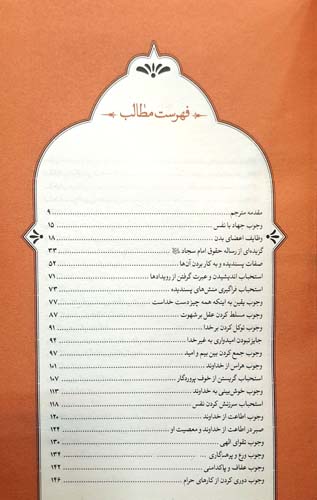 فهرست مطالب
مقدمه مترجم ۹
وجوب جهاد با نفس ۱۵
وظایف اعضای بدن ۱۸
گزیده‌ای از رساله حقوق امام سجاد ۳۳
صفات پسندیده و به کار بردن آن‌ها ۵۲
استحباب اندیشیدن و عبرت گرفتن از رویدادها ۷۱
استحباب فراگیری منش‌های پسندیده ۷۳
وجوب یقین به اینکه همه چیز دست خداست ۷۷
وجوب مسلط کردن عقل بر شهوت ۸۷
وجوب توکل کردن بر خدا ۹۱
جایز نبودن امیدواری به غیر خدا ۹۴
وجوب جمع کردن بین بیم و امید ۹۷
وجوب هراس از خداوند ۱۰۱
استحباب گریستن از خوف پروردگار ۱۰۷
وجوب خوش‌بینی به خداوند ۱۱۳
استحباب سرزنش کردن نفس ۱۱۸
وجوب اطاعت از خداوند ۱۲۰
صبر در اطاعت از خداوند و معصیت او ۱۲۴
وجوب تقوای الهی ۱۳۰
وجوب ورع و پرهیزگاری ۱۳۴
وجوب عفاف و پاکدامنی ۱۴۲
وجوب دوری کردن از کارهای حرام ۱۴۶